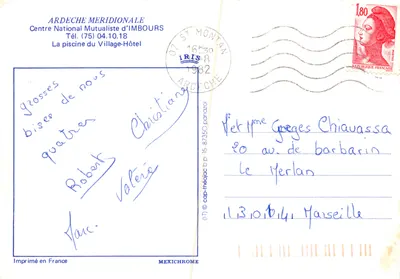 ARDECHE MERIDIONALE
Centre National Mutualiste d'IMBOURS
Tél. (75) 04.10.18
La piscine du Village-Hôtel
grosses
bises de nous
quatre
Christiane
Robert
Valérie
Marc.
Imprimé en France
MEXICHROME
cap-théojac
07 ST MONTAN
1982
ARDECHE
1,80
M et Mme Georges Chiavassa
20 av. de barbarin
le Merlan
13014 Marseille